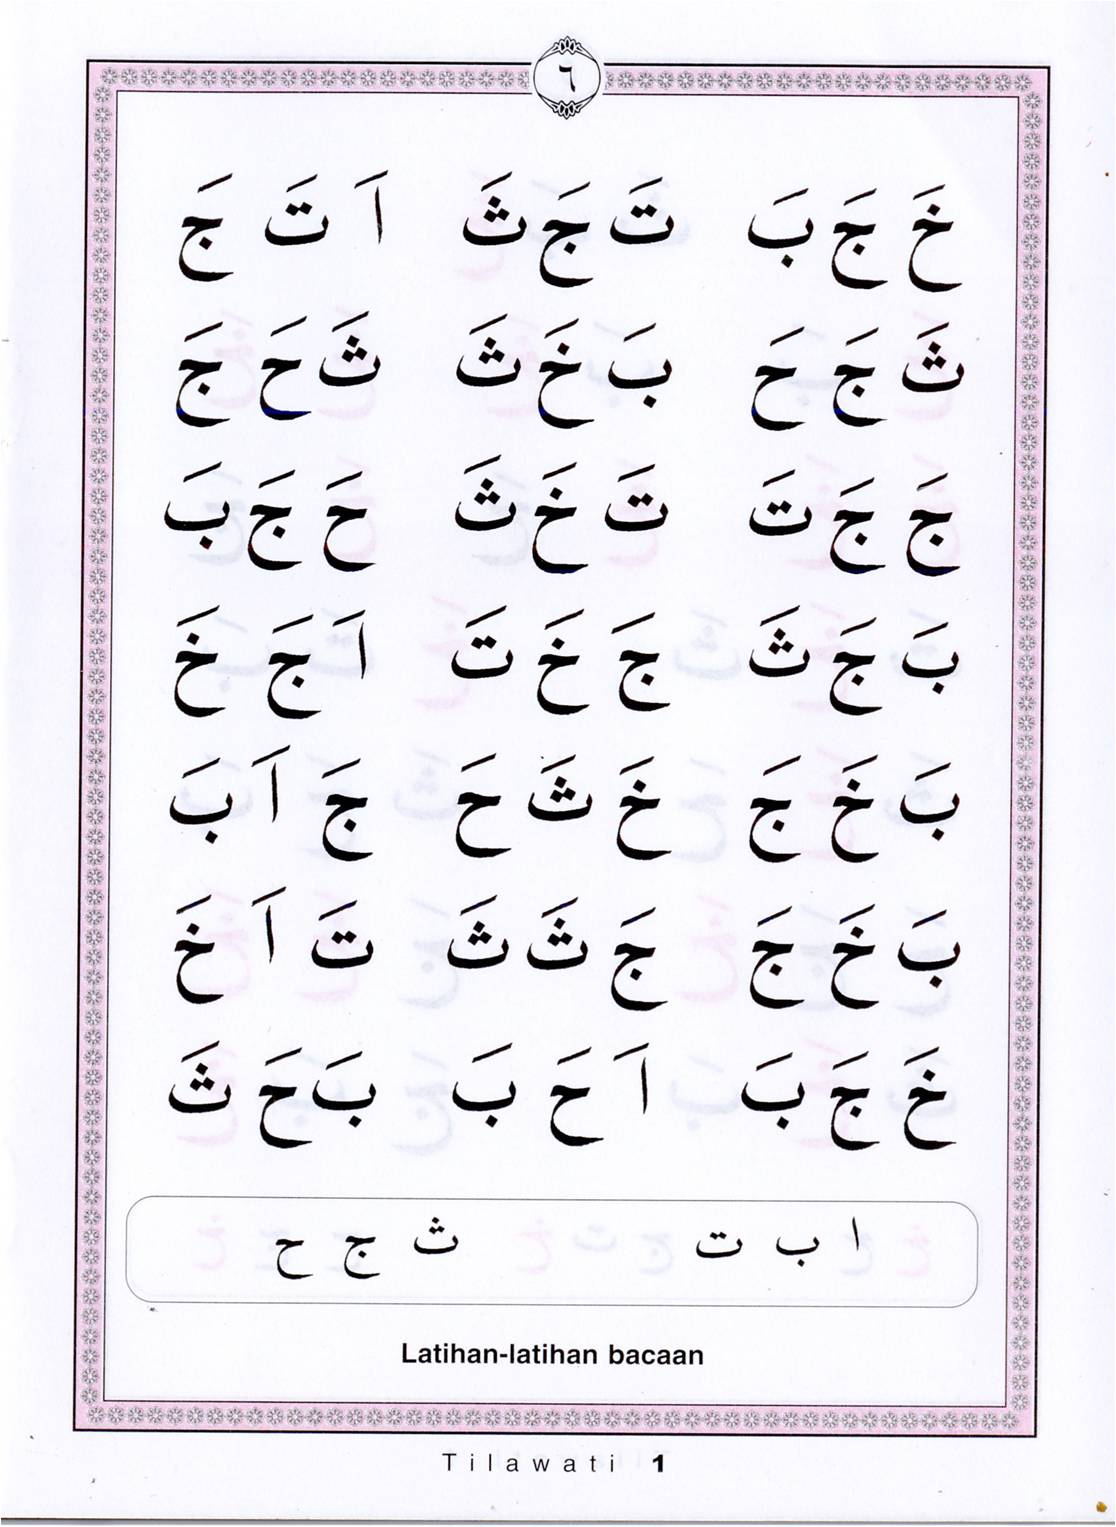 ٦
خَ جَ بَ تَ جَ ثَ اَ تَ جَ
ثَ جَ حَ بَ خَ ثَ ثَ حَ جَ
جَ جَ تَ تَ خَ ثَ حَ جَ بَ
بَ جَ ثَ جَ خَ تَ اَ جَ خَ
بَ خَ جَ خَ ثَ حَ جَ اَ بَ
بَ خَ جَ جَ ثَ ثَ تَ اَ خَ
خَ جَ بَ اَ حَ بَ بَ حَ ثَ
ا ب ت ث ج ح
Latihan-latihan bacaan
Tilawati 1